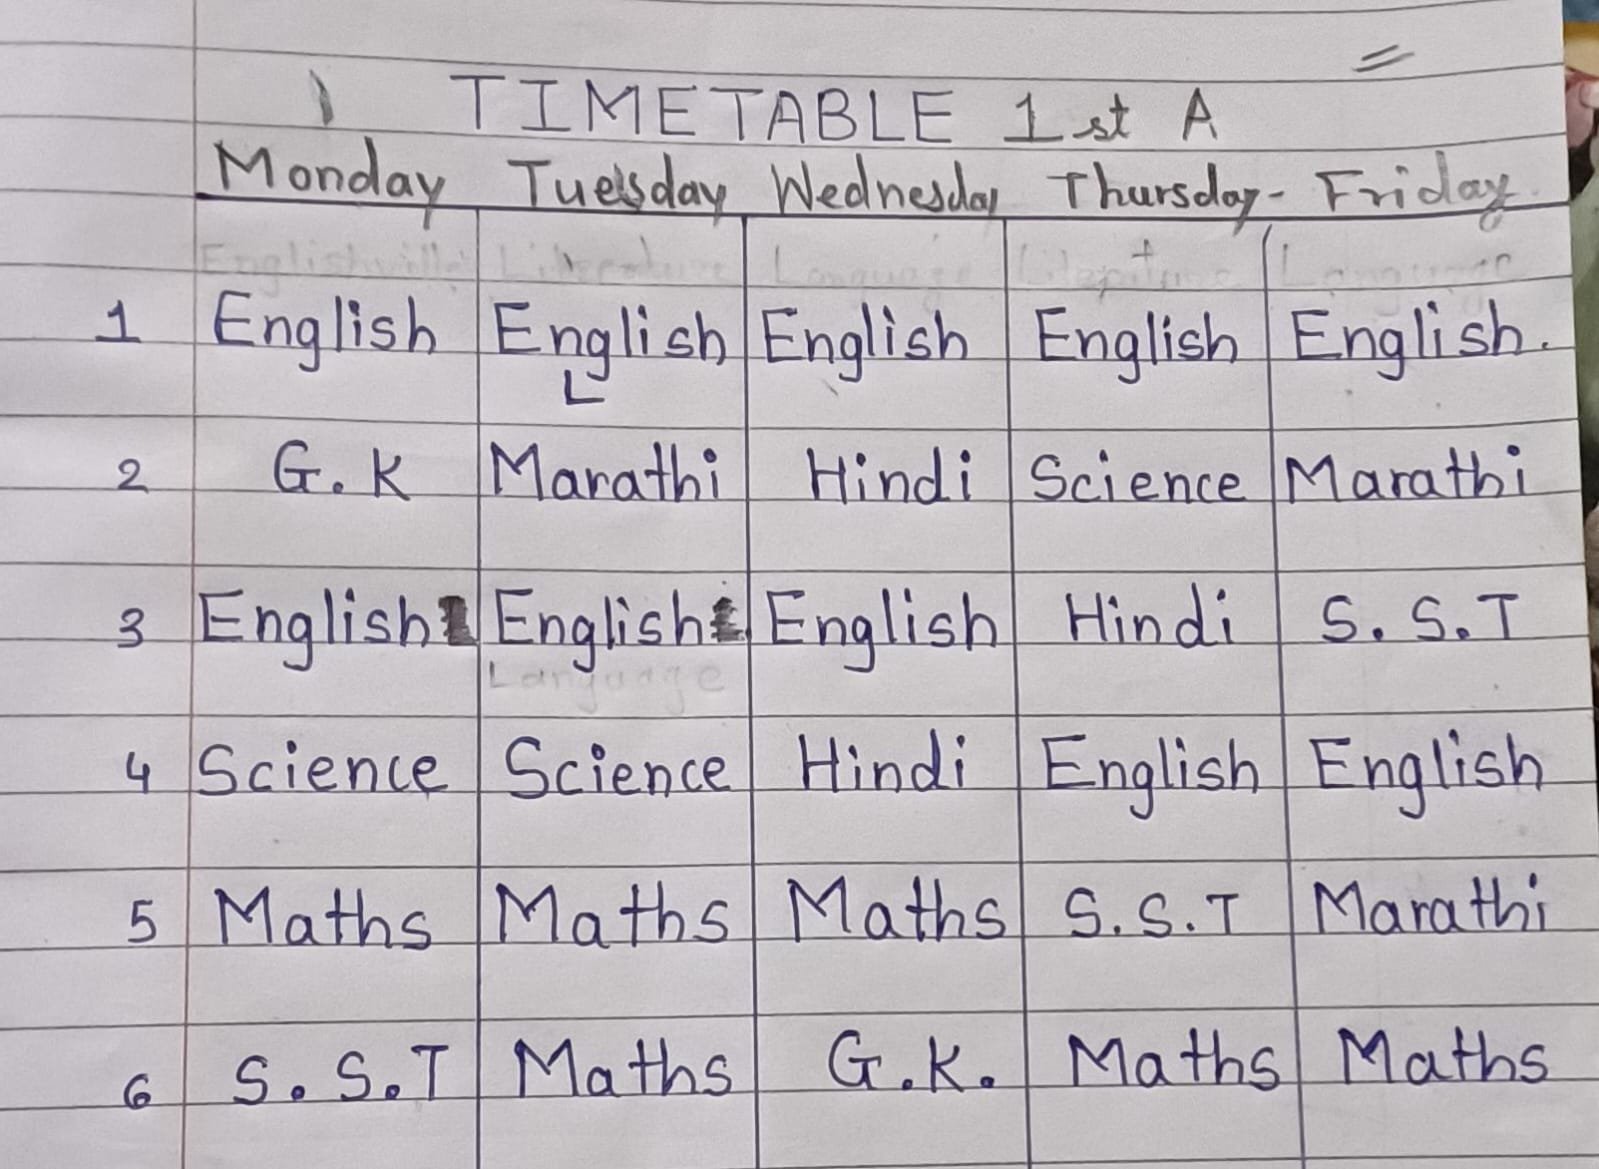 TIMETABLE 1st A
Monday Tuesday Wednesday Thursday- Friday.
Language Language
1 English English English English English.
L
2 G.K Marathi Hindi Science Marathi
3 English English English Hindi S.S.T
Language
4 Science Science Hindi English English
5 Maths Maths Maths S.S.T Marathi
6 S.S.T Maths G.K. Maths Maths